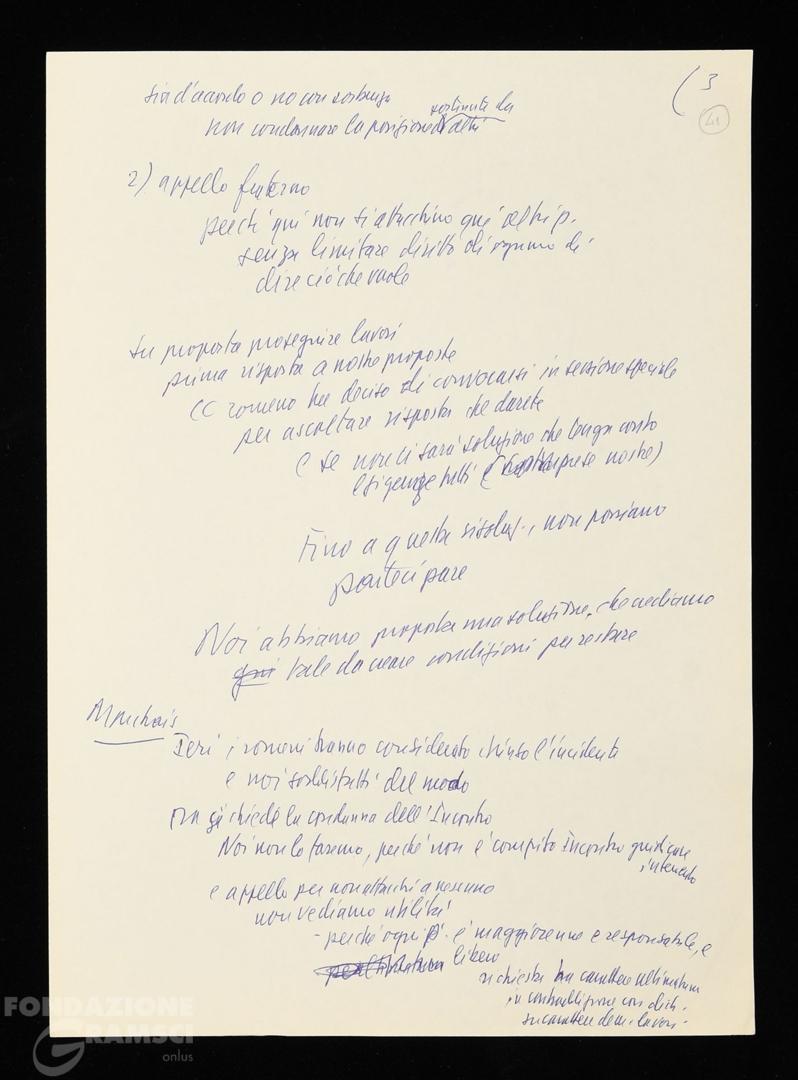 ( 3
41
sia d'accordo o no con sostanza
sostenute da
non condannare la posizione di altri
2) appello fraterno
perché qui non si attacchino qui altri p.
senza limitare diritto di ognuno di
dire ciò che vuole
su proposta proseguire lavori
prima risposta a nostre proposte
CC romeno ha deciso di convocarsi in sessione speciale
per ascoltare risposta che darete
e se non ci sarà soluzione che tenga conto
esigenze tutti ( comprese nostre)
Fino a questa risoluz., non possiamo
partecipare
Noi abbiamo proposta una soluzione, che crediamo
tale da creare condizioni per restare
Marchais
Ieri i romeni hanno considerato chiuso l'incidente
e noi soddisfatti del modo
ora si chiede la condanna dell'Incontro
Noi non lo faremo, perché non è compito Incontro giudicare
intervento
e appello per non attacchi a nessuno
non vediamo utilità
- perché ogni p. è maggiorenne e responsabile, e
libero
richiesta ha carattere ultimatum
in contraddizione con dich.
su carattere dem. lavori -
FONDAZIONE
GRAMSCI
onlus